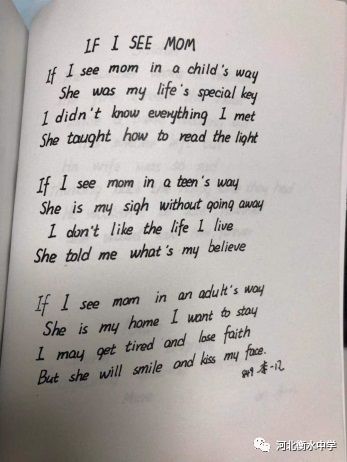 IF I SEE MOM
If I see mom in a child's way
She was my life's special key
I didn't know everything I met
She taught how to read the light
If I see mom in a teen's way
She is my sigh without going away
I don't like the life I live
She told me what's my believe
If I see mom in an adult's way
She is my home I want to stay
I may get tired and lose faith
But she will smile and kiss my face.
河北衡水中学